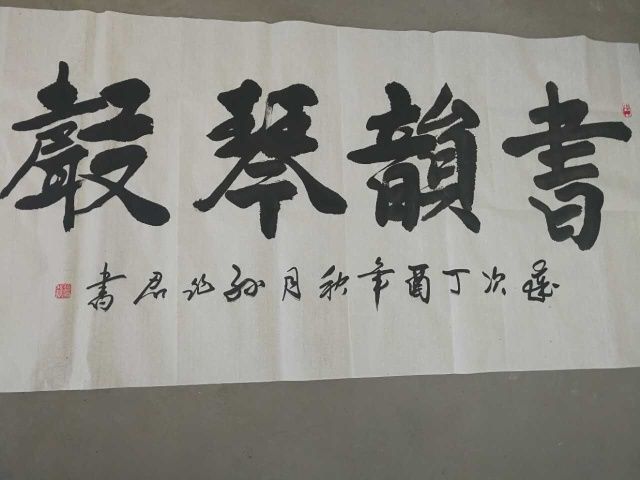 書韻琴聲
歲次丁酉年秋月孫君書